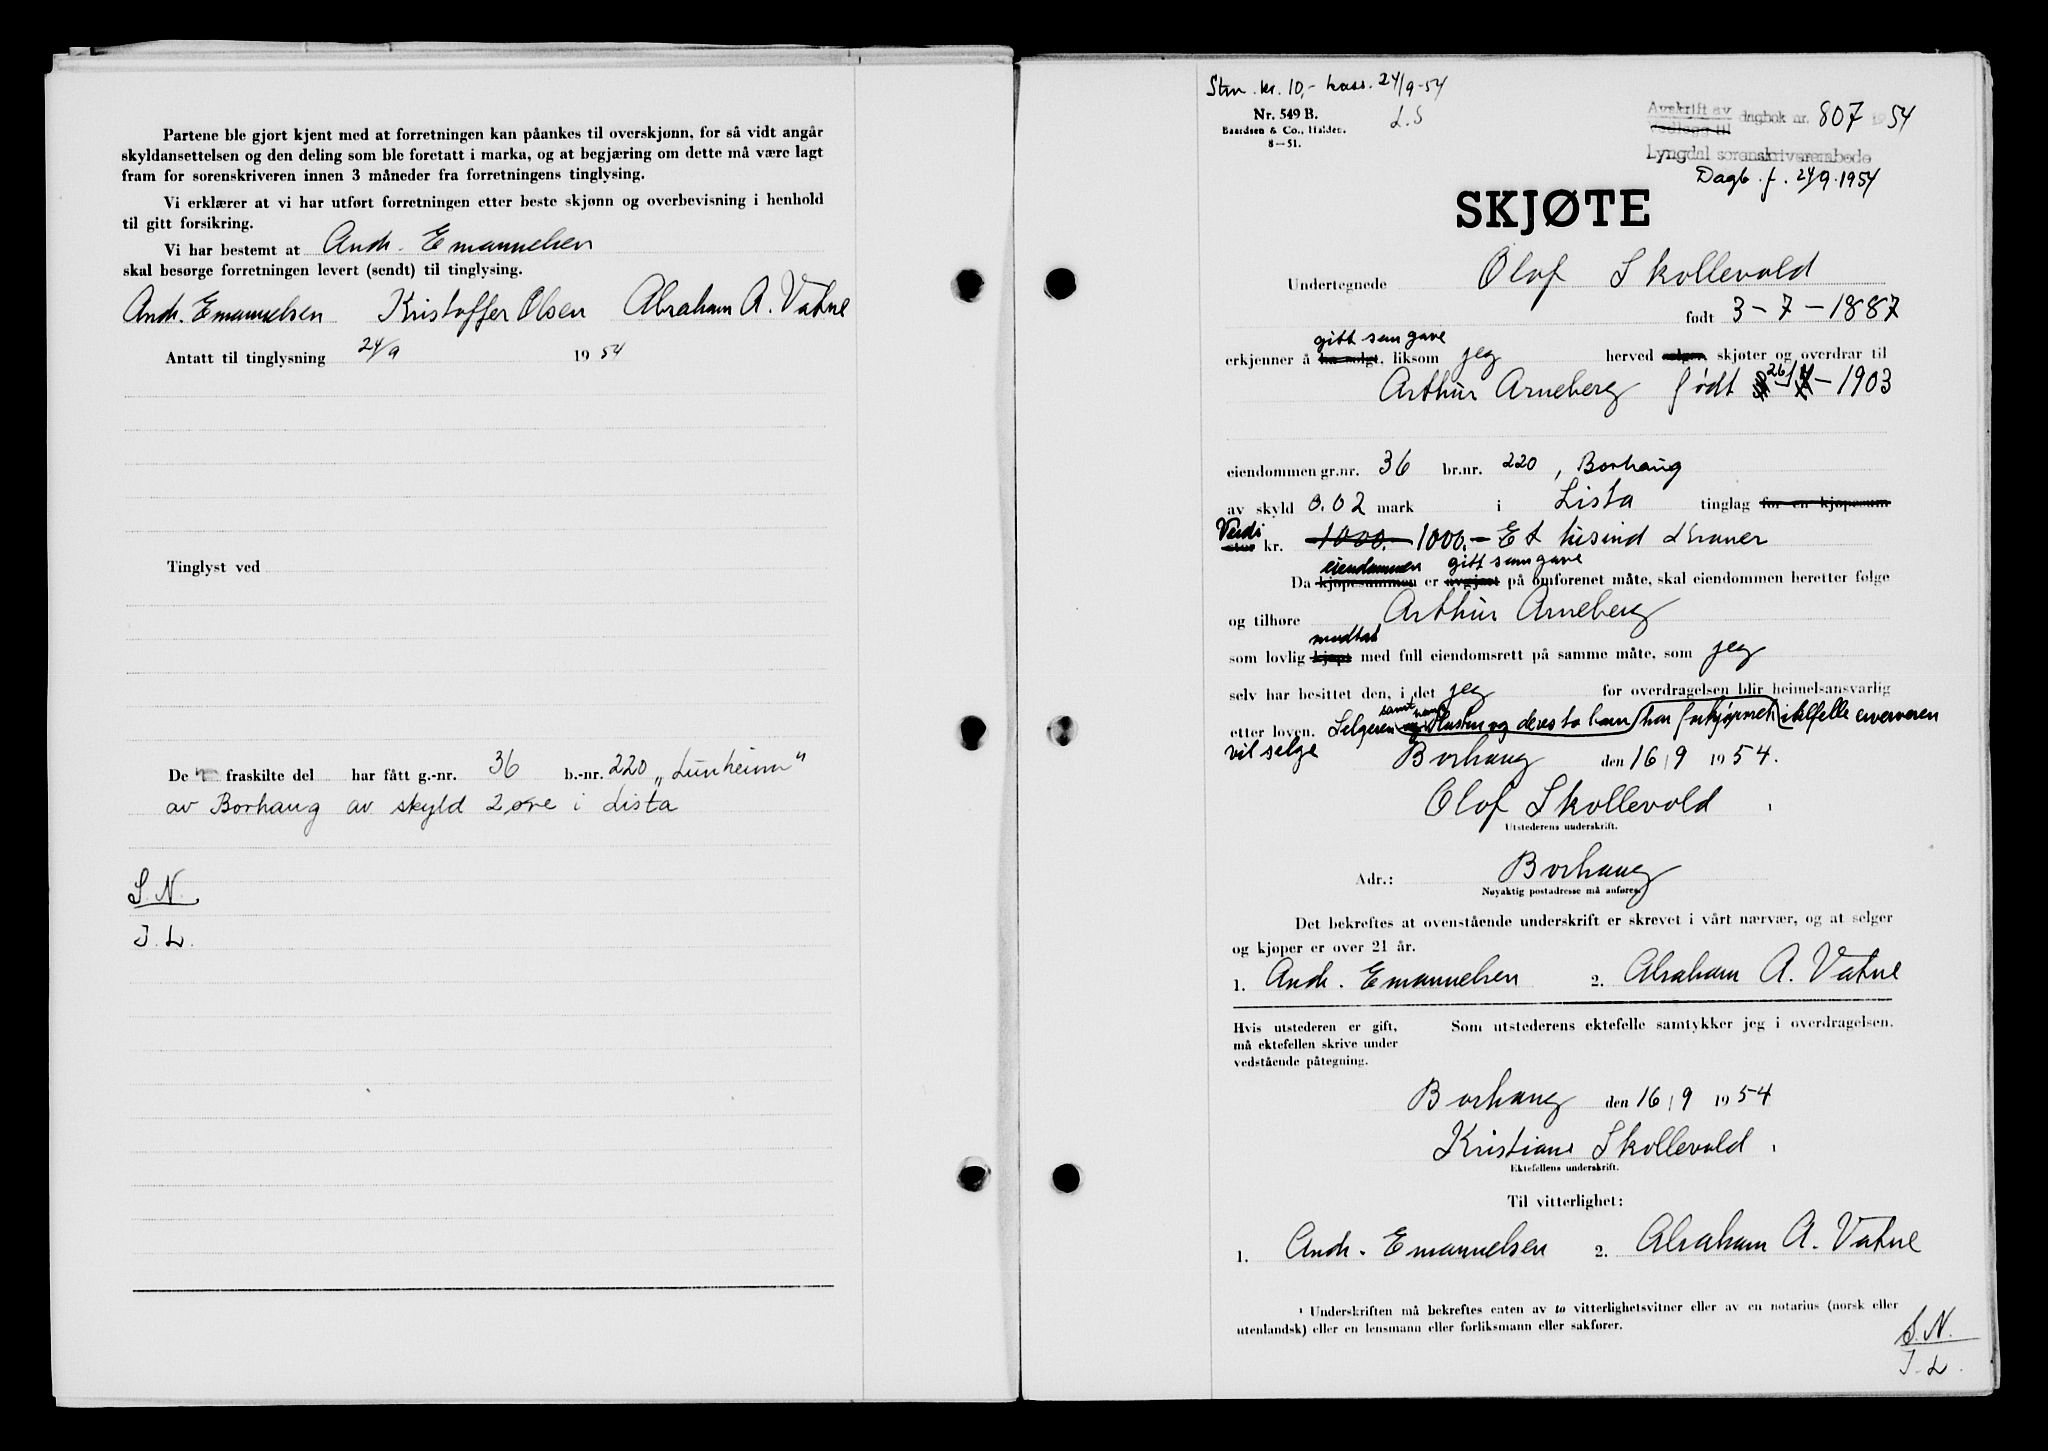 Partene ble gjort kjent med at forretningen kan påankes til overskjønn, for så vidt angår
skyldansettelsen og den deling som ble foretatt i marka, og at begjæring om dette må være lagt
fram for sorenskriveren innen 3 måneder fra forretningens tinglysing.
Vi erklærer at vi har utført forretningen etter beste skjønn og overbevisning i henhold
til gitt forsikring.
Vi har bestemt at Andr. Emanuelsen
skal besørge forretningen levert (sendt) til tinglysing.
Andr. Emanuelsen Kristoffer Olsen Abraham A. Vatne
Antatt til tinglysning 24/9 1954
Tinglyst ved
De fraskilte del har fått g.-nr. 36 b.-nr. 220 „Lunheim"
av Borhaug av skyld 2 øre i Lista
S.N.
J.L.
Stm. kr. 10,- kass. 24/9-54
Nr. 549 B.
L.S
Baardsen & Co., Halden.
8—51.
Avskrift av dagbok nr. 807 1954
Lyngdal sorenskriverembede
Dagb. f. 24/9.1954
SKJØTE
Undertegnede Olof Skollevold
født 3-7-1887
gitt som gave
erkjenner å ha solgt, liksom jeg herved selger, skjøter og overdrar til
Arthur Arneberg født 26/ - 1903
eiendommen gr.nr. 36 br.nr. 220, Borhaug
av skyld 0.02 mark i Lista tinglag for en kjøpesum
Verdi
stor kr. 1000.- 1000.- Et tusind kroner
eiendommen gitt som gave
Da kjøpesummen er avgjort på omforenet måte, skal eiendommen heretter følge
og tilhøre Arthur Arneberg
mottat
som lovlig kjøpt med full eiendomsrett på samme måte, som jeg
selv har besittet den, i det jeg for overdragelsen blir heimelsansvarlig
samt hans
etter loven. Selgeren og Hustru og deres to barn har forkjøpsrett i tilfelle erververen
vil selge
Borhaug den 16/9 1954.
Olof Skollevold
Utstederens underskrift.
Adr.: Borhaug
Nøyaktig postadresse må anføres.
Det bekreftes at ovenstående underskrift er skrevet i vårt nærvær, og at selger
og kjøper er over 21 år.
1. Andr. Emanuelsen 2. Abraham A. Vatne
Hvis utstederen er gift,
må ektefellen skrive under
vedstående påtegning.
Som utstederens ektefelle samtykker jeg i overdragelsen.
Borhaug den 16/9 1954
Kristiane Skollevold
Ektefellens underskrift.
Til vitterlighet:
1. Andr. Emanuelsen 2. Abraham A. Vatne
¹ Underskriften må bekreftes enten av to vitterlighetsvitner eller av en notarius (norsk eller
utenlandsk) eller en lensmann eller forliksmann eller sakfører.
S.N.
J.L.